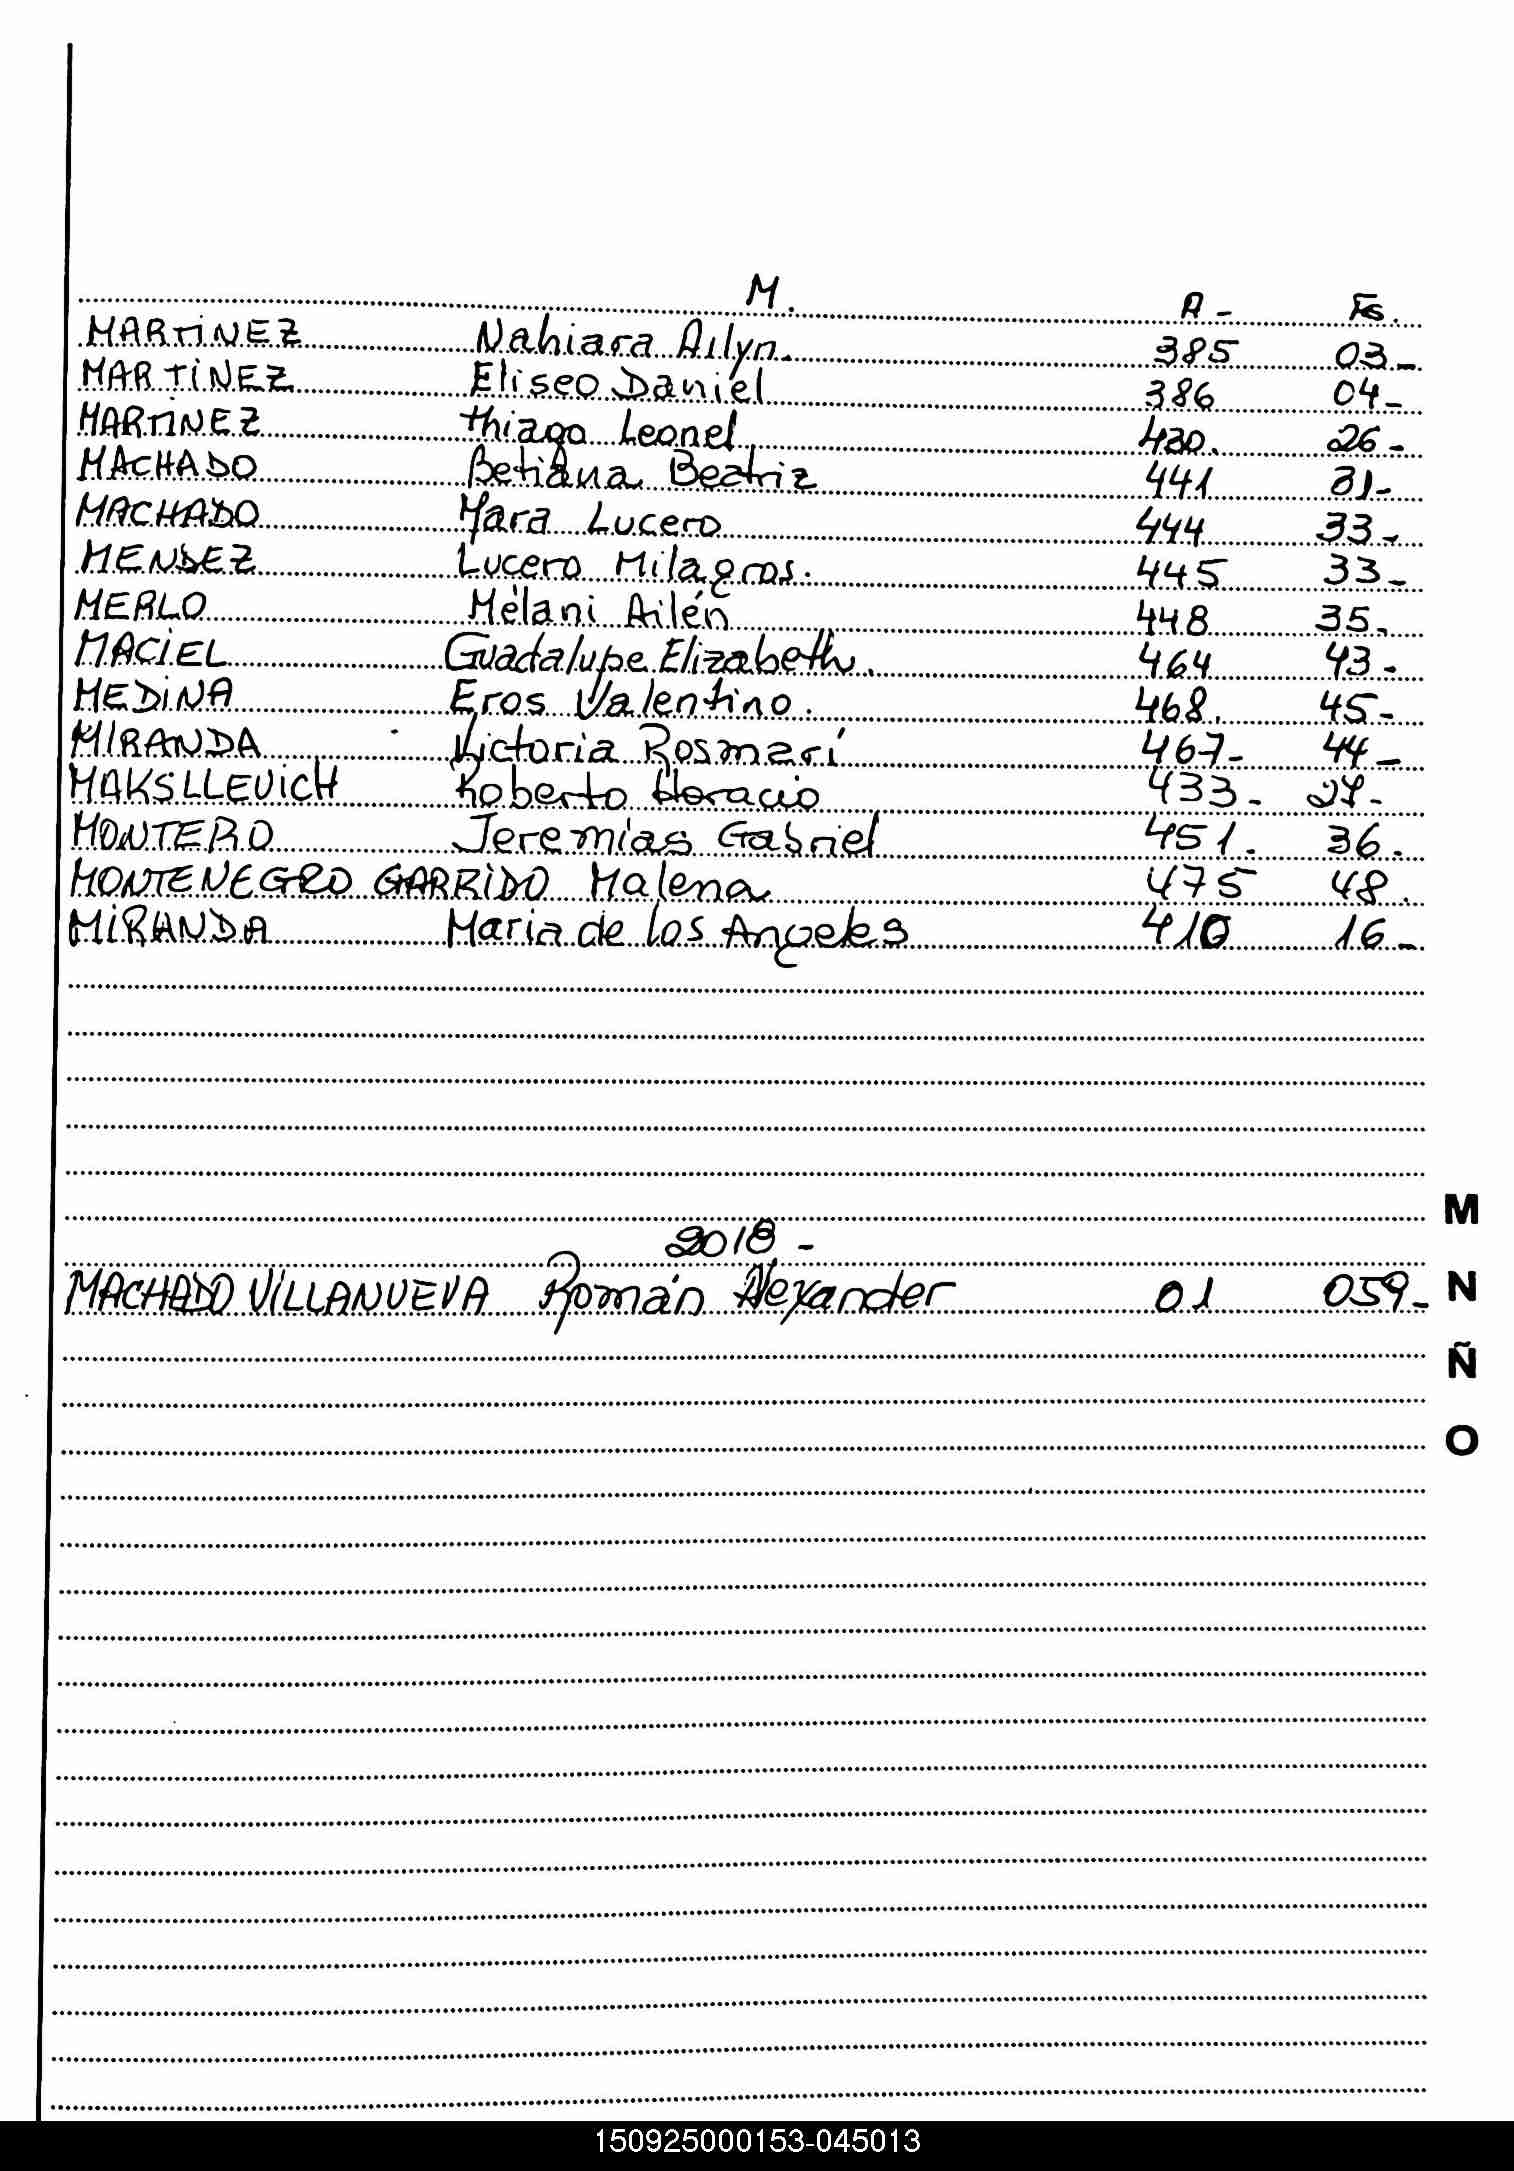 M.
A - Fs.
MARTINEZ Nahiara Ailyn. 385 03-
MARTINEZ Eliseo Daniel 386 04-
MARTINEZ Thiago Leonel 430. 26-
MACHADO Betiana Beatriz 441 31-
MACHADO Yara Lucero 444 33-
MENDEZ Lucero Milagros. 445 33-
MERLO Melani Ailén 448 35.
MACIEL Guadalupe Elizabeth. 464 43-
MEDINA Eros Valentino. 468. 45-
MIRANDA Victoria Rosmari 467- 44-
MAKSLLEVICH Roberto Horacio 433- 27-
MONTERO Jeremías Gabriel 451. 36.
MONTENEGRO GARRIDO Malena 475 48.
MIRANDA Maria de los Angeles 410 16-
M
2018-
MACHADO VILLANUEVA Román Alexander 01 059-
N
Ñ
O
150925000153-045013